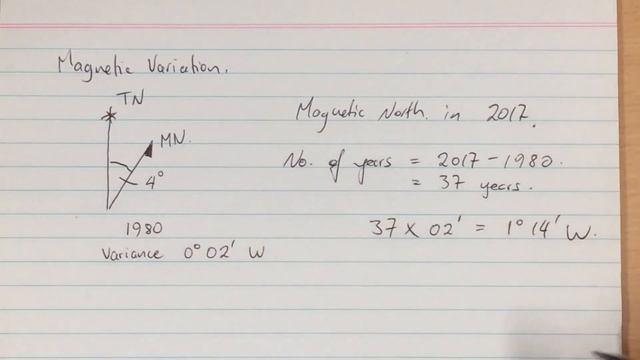 Magnetic Variation.
TN
MN.
4°
1980
Variance 0° 02' W
Magnetic North. in 2017.
No. of years = 2017 - 1980.
= 37 years.
37 × 02' = 1° 14' W.